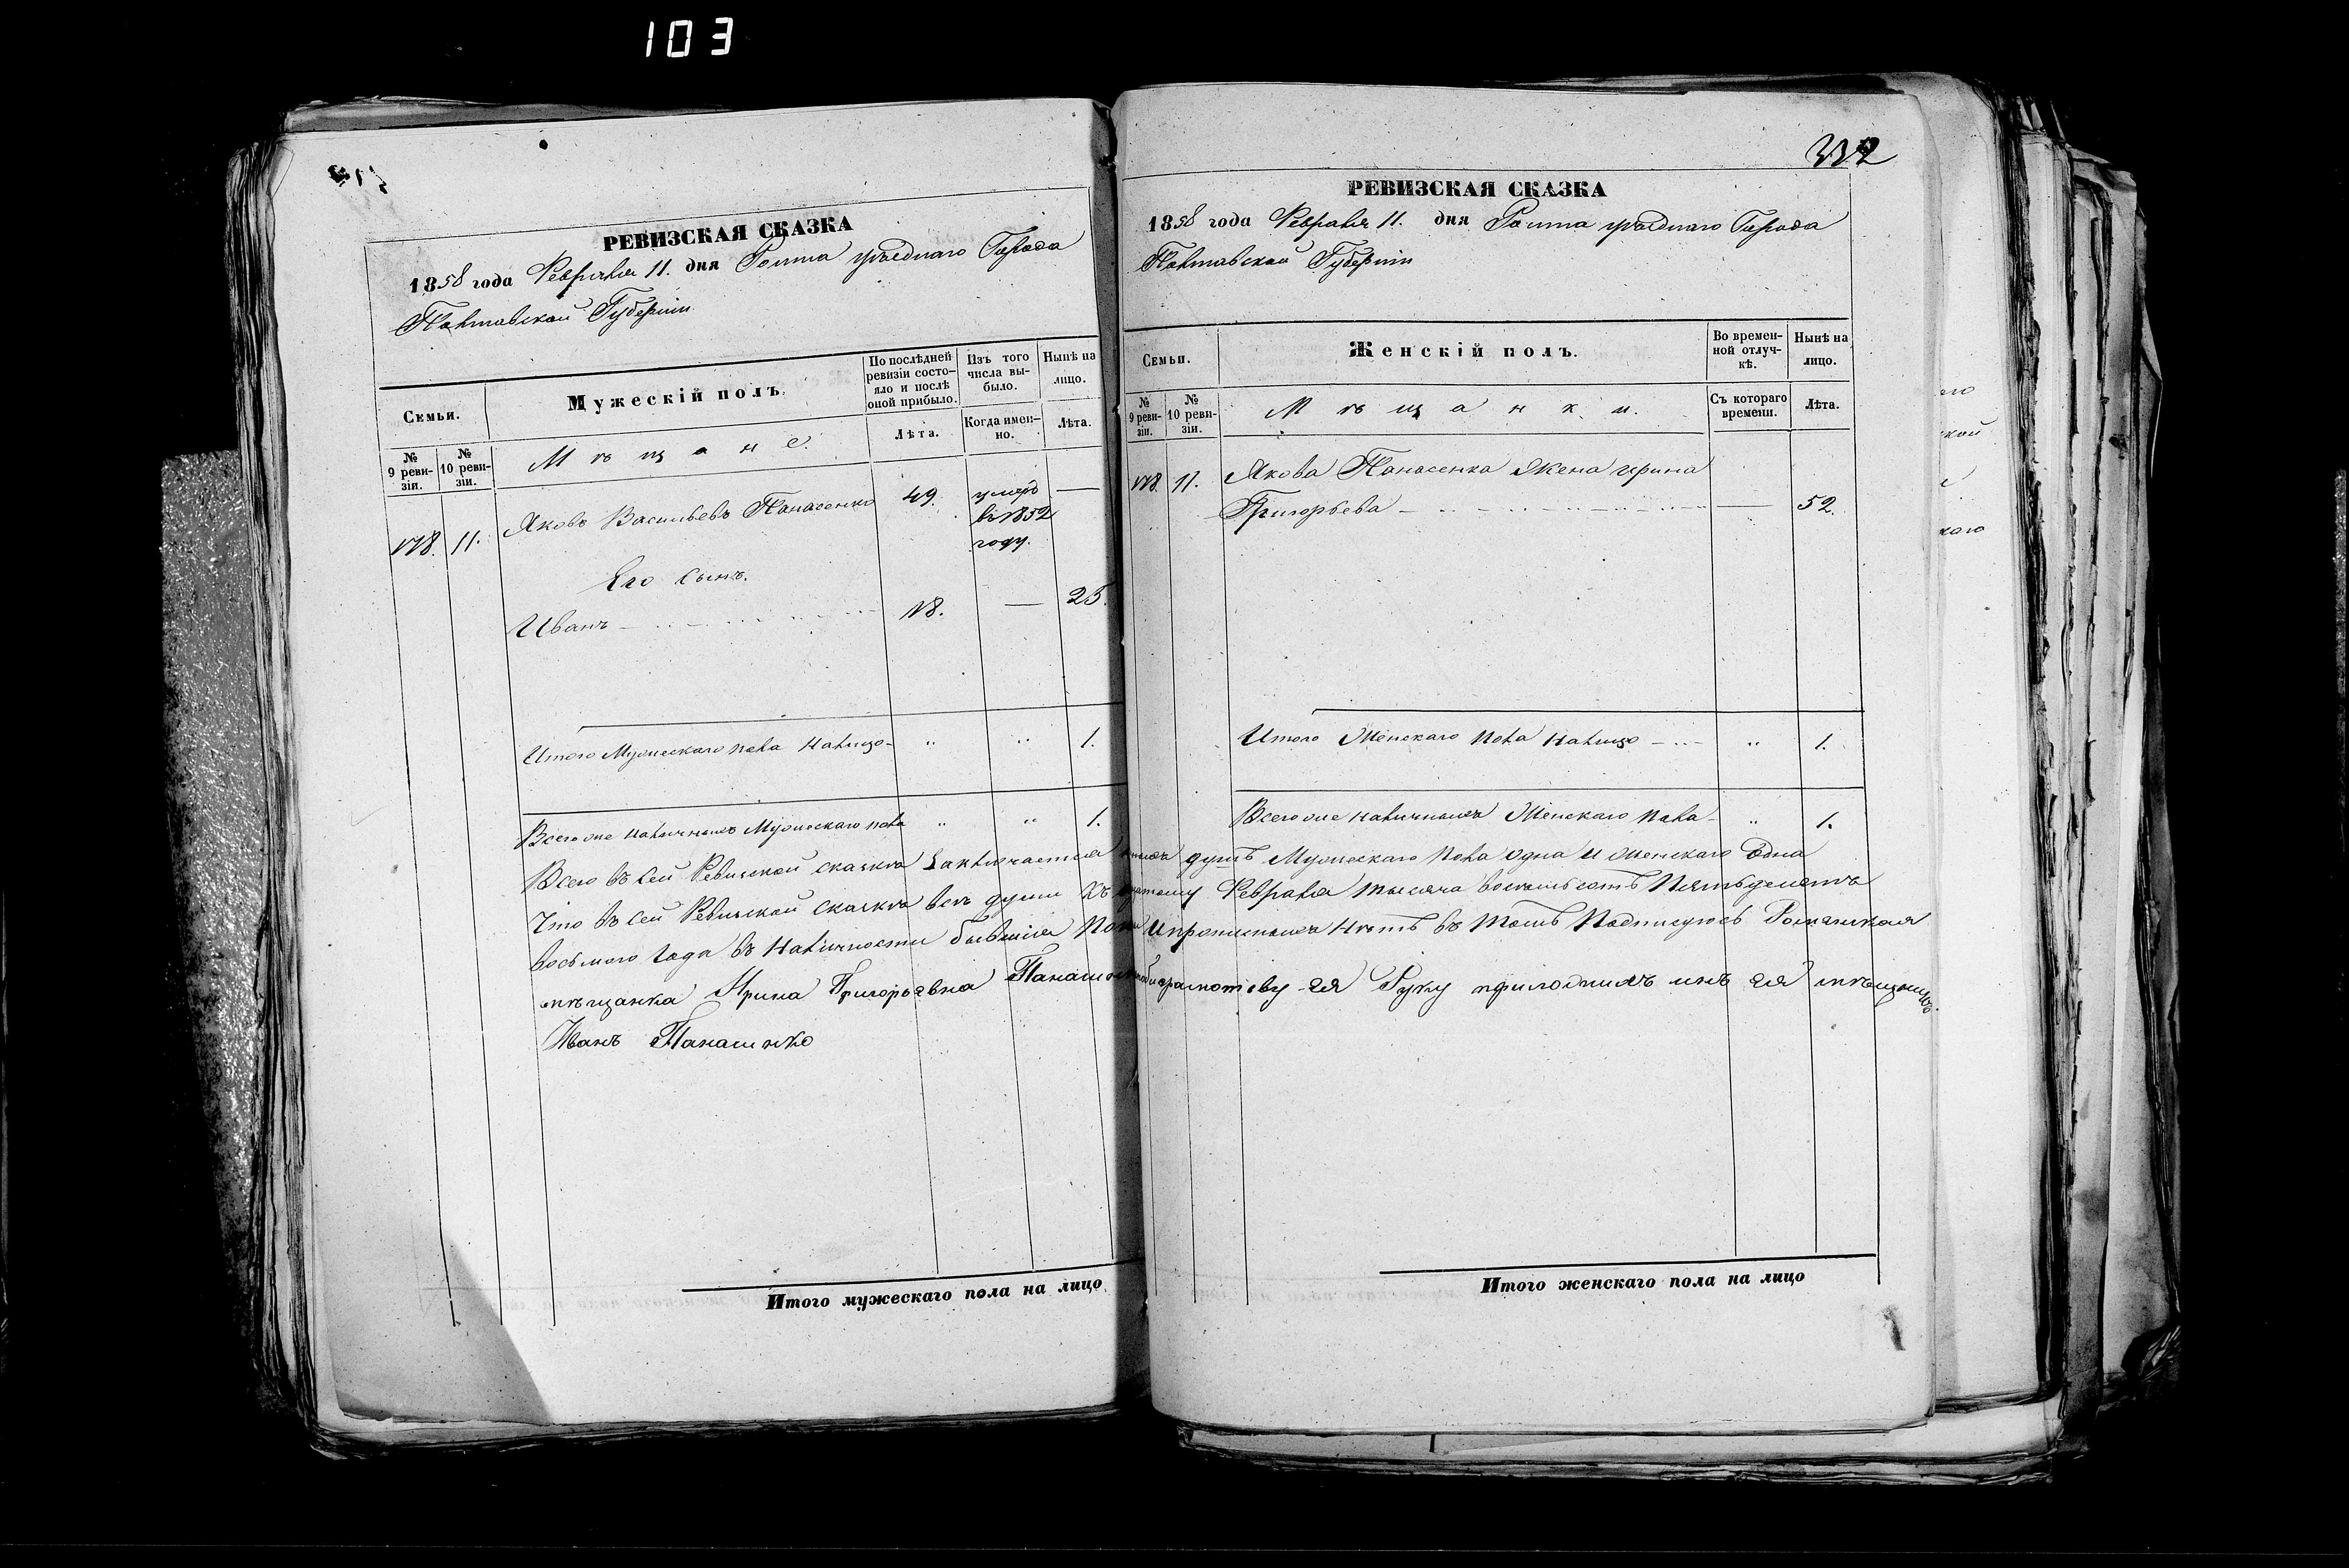 103
РЕВИЗСКАЯ СКАЗКА
1858 года Февраля 11. дня Ромна уѣзднаго Города
Полтавской Губерніи
Семьи.
Мужескій полъ.
По послѣдней ревизіи состо-
яло и послѣ
оной прибыло.
Изъ того
числа вы-
было.
Нынѣ на
лицо.
№
9 реви-
зіи.
№
10 реви-
зіи.
Мѣщане.
Лѣта.
Когда имен-
но.
Лѣта.
178. 11. Яковъ Васильевъ Панасенко 49. умеръ —
въ 1852
году.
Его сынъ.
Иванъ 18. — 25.
Итого Мужескаго пола налицо „ „ 1.
Всего же наличныхъ Мужескаго пола „ „ 1.
332
РЕВИЗСКАЯ СКАЗКА
1858 года Февраля 11. дня Ромна уѣзднаго Города
Полтавской Губерніи
Семьи.
Женскій полъ.
Во времен-
ной отлуч-
кѣ.
Нынѣ на
лицо.
№
9 реви-
зіи.
№
10 реви-
зіи.
Мѣщанки.
Съ котораго
времени.
Лѣта.
178. 11. Якова Панасенка Жена Ирина
Григорьева — 52.
Итого Женскаго пола налицо „ 1.
Всего же наличныхъ Женскаго пола „ 1.
Всего въ сей Ревизской сказкѣ Заключается душъ Мужескаго пола одна и женскаго Одна
Что въ сей Ревизской сказкѣ всѣ души къ Февраля тысяча восемьсотъ Пятьдесятъ
восьмого Года въ Наличности бывшія и прописныхъ нѣтъ въ томъ Подписуюсь Роменская
мѣщанка Ирина Григорьевна ея Руку приложилъ инъ ея мѣщанинъ
Иванъ Панашенко
Итого мужескаго пола на лицо
Итого женскаго пола на лицо